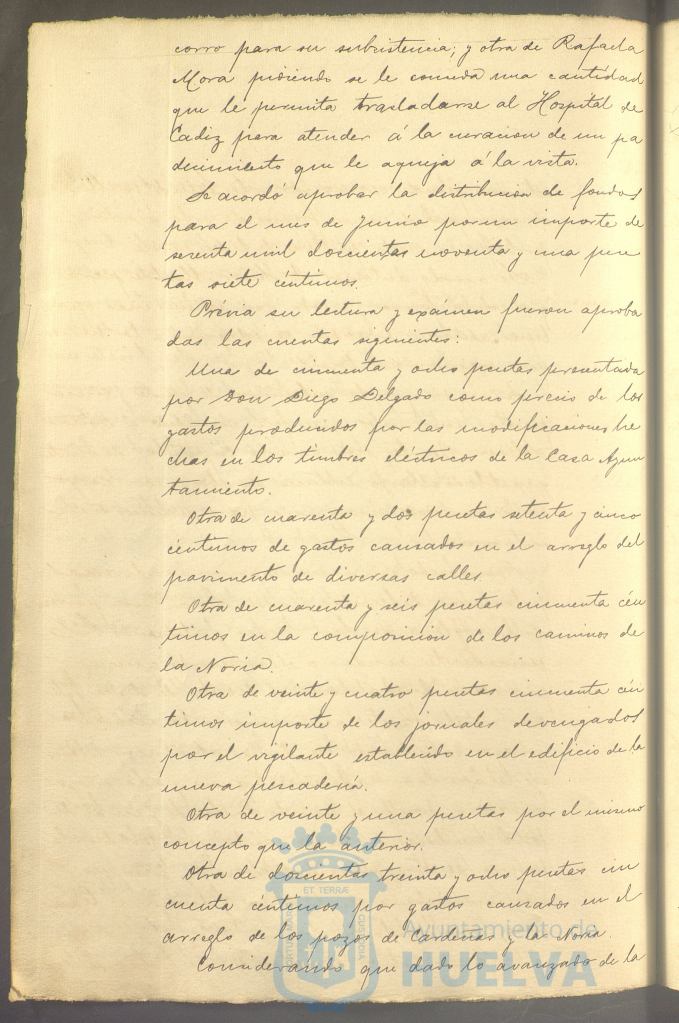 corro para su subsistencia; y otra de Rafaela
Mora pidiendo se le conceda una cantidad
que le permita trasladarse al Hospital de
Cadiz para atender á la curacion de un pa
decimiento que le aqueja á la vista.
Se acordó aprobar la distribucion de fondos
para el mes de Junio por un importe de
sesenta mil doscientas noventa y una pese
tas siete céntimos.
Prévia su lectura y exámen fueron aproba
das las cuentas siguientes:
Una de cincuenta y ocho pesetas presentada
por Don Diego Delgado como precio de los
gastos producidos por las modificaciones he
chas en los timbres eléctricos de la Casa Ayun
tamiento.
Otra de cuarenta y dos pesetas setenta y cinco
céntimos de gastos causados en el arreglo del
pavimento de diversas calles.
Otra de cuarenta y seis pesetas cincuenta cén
timos en la composicion de los caminos de
la Noria.
Otra de veinte y cuatro pesetas cincuenta cén
timos importe de los jornales devengados
por el vigilante establecido en el edificio de la
nueva pescadería.
Otra de veinte y una pesetas por el mismo
concepto que la anterior.
Otra de doscientas treinta y ocho pesetas cin
cuenta céntimos por gastos causados en el
arreglo de los pozos de Cardenas y la Noria.
Considerando que dado lo avanzado de la
ET TERRÆ
Ayuntamiento de
HUELVA